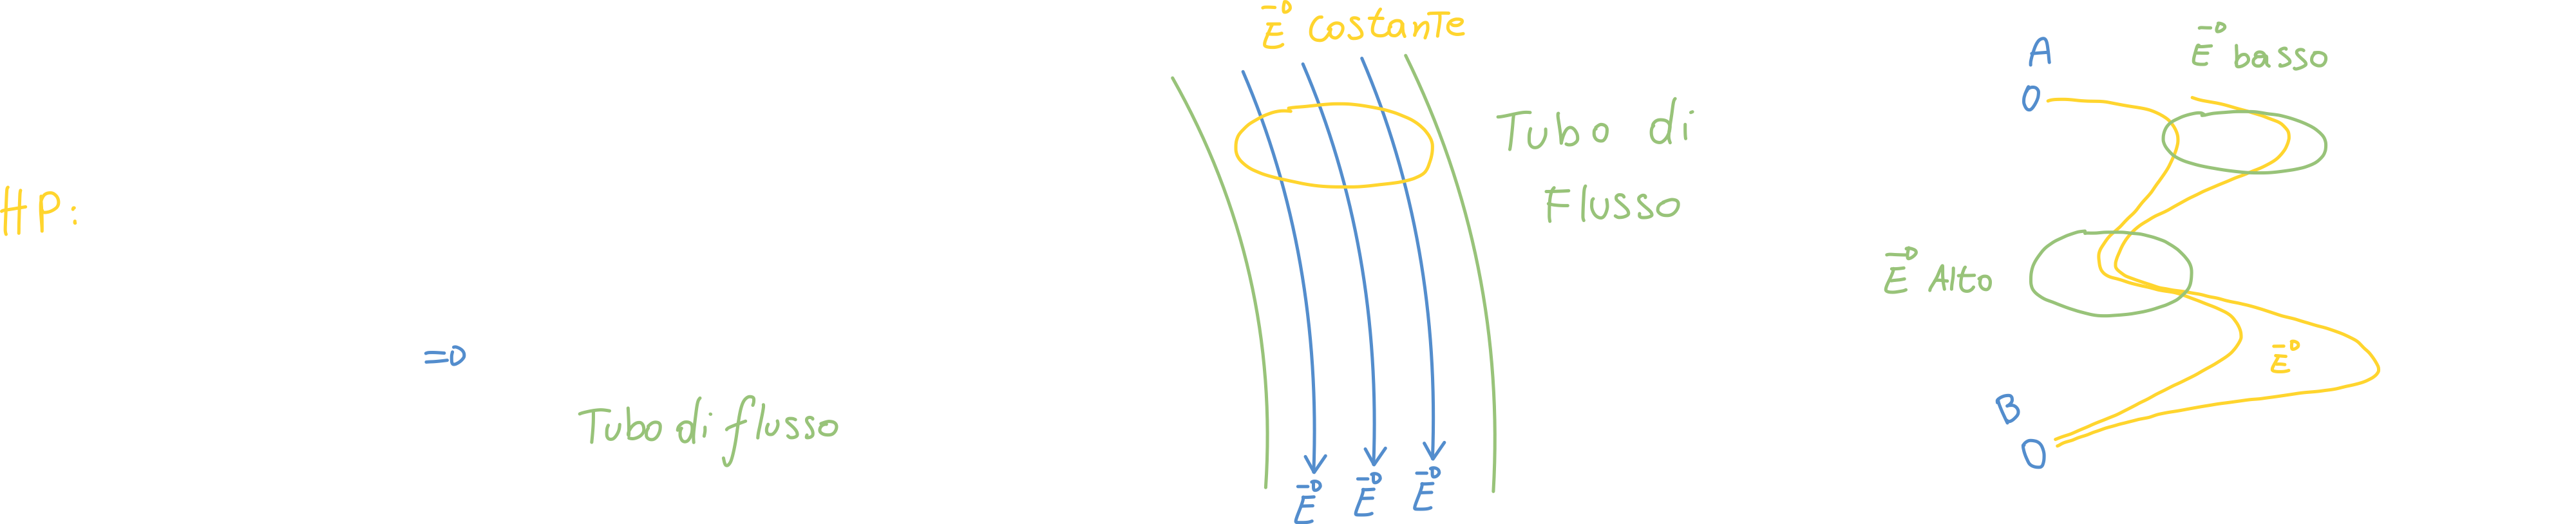 HP:
=D
Tubo di flusso
E costante
Tubo di
Flusso
E E E
A
O
E basso
E Alto
E
B
O